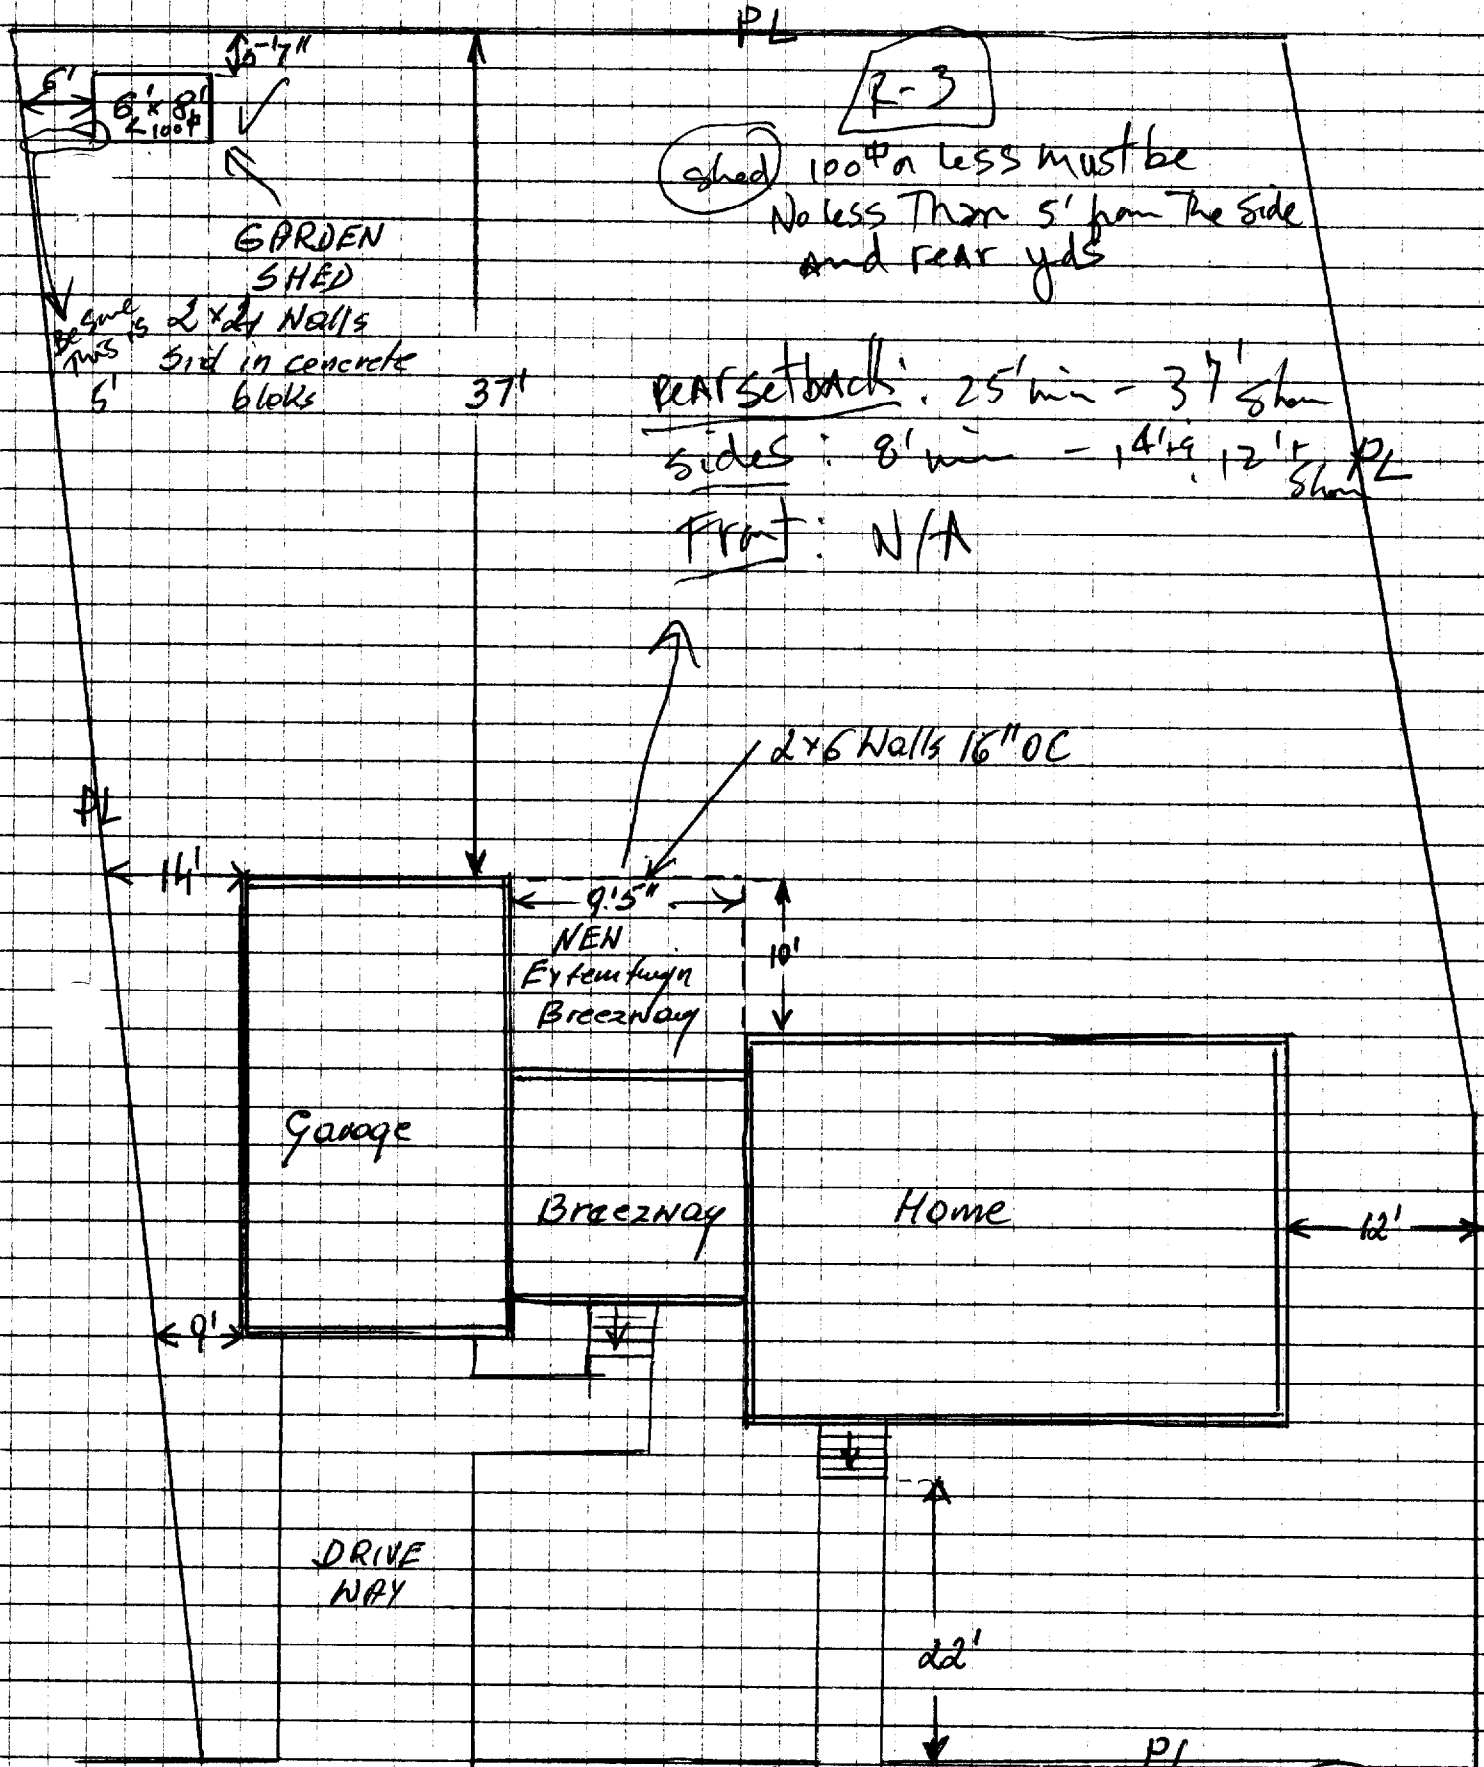 PL
R-3
6'
6' x 8'
<100#
shed 100# or less must be
No less Than 5' from The side
And rear yds
GARDEN
SHED
2x4 Walls
Sid in concrete
bloks
Be sure
this is
5'
37'
rear setback: 25' min - 37' shown
sides: 8' min - 14'+9', 12'+
shown
PL
Front: N/A
2x6 Walls 16" OC
PL
14'
9'.5"
NEW
Extentwyn
Breezway
10'
Garage
Breezway
Home
12'
9'
DRIVE
WAY
22'
PL